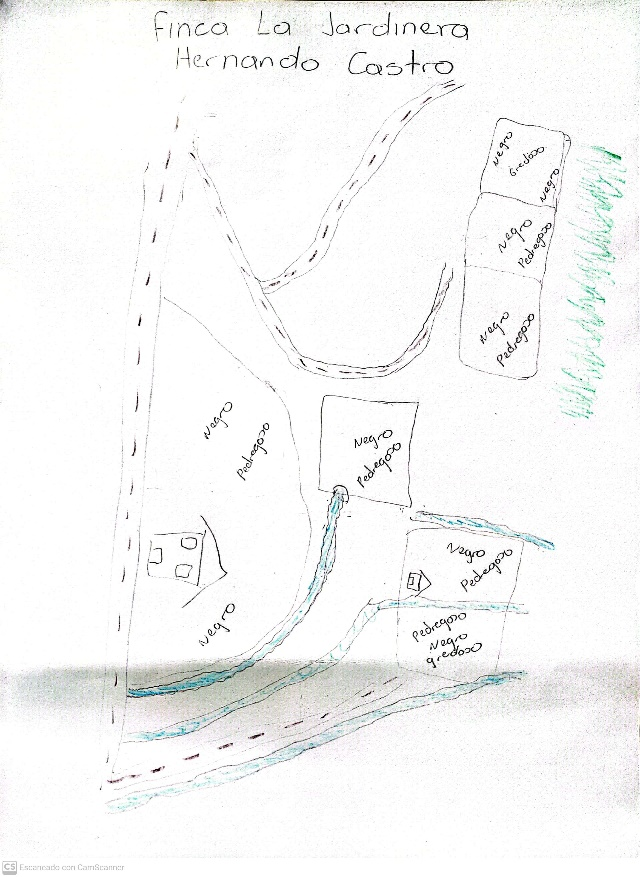 Finca La Jardinera
Hernando Castro
Negro
Gredoso
Negro
Negro
Pedregoso
Negro
Pedregoso
Negro
Pedregoso
Negro
Pedregoso
Negro
Pedregoso
Negro
Pedregoso
Negro
gredoso
CS Escaneado con CamScanner